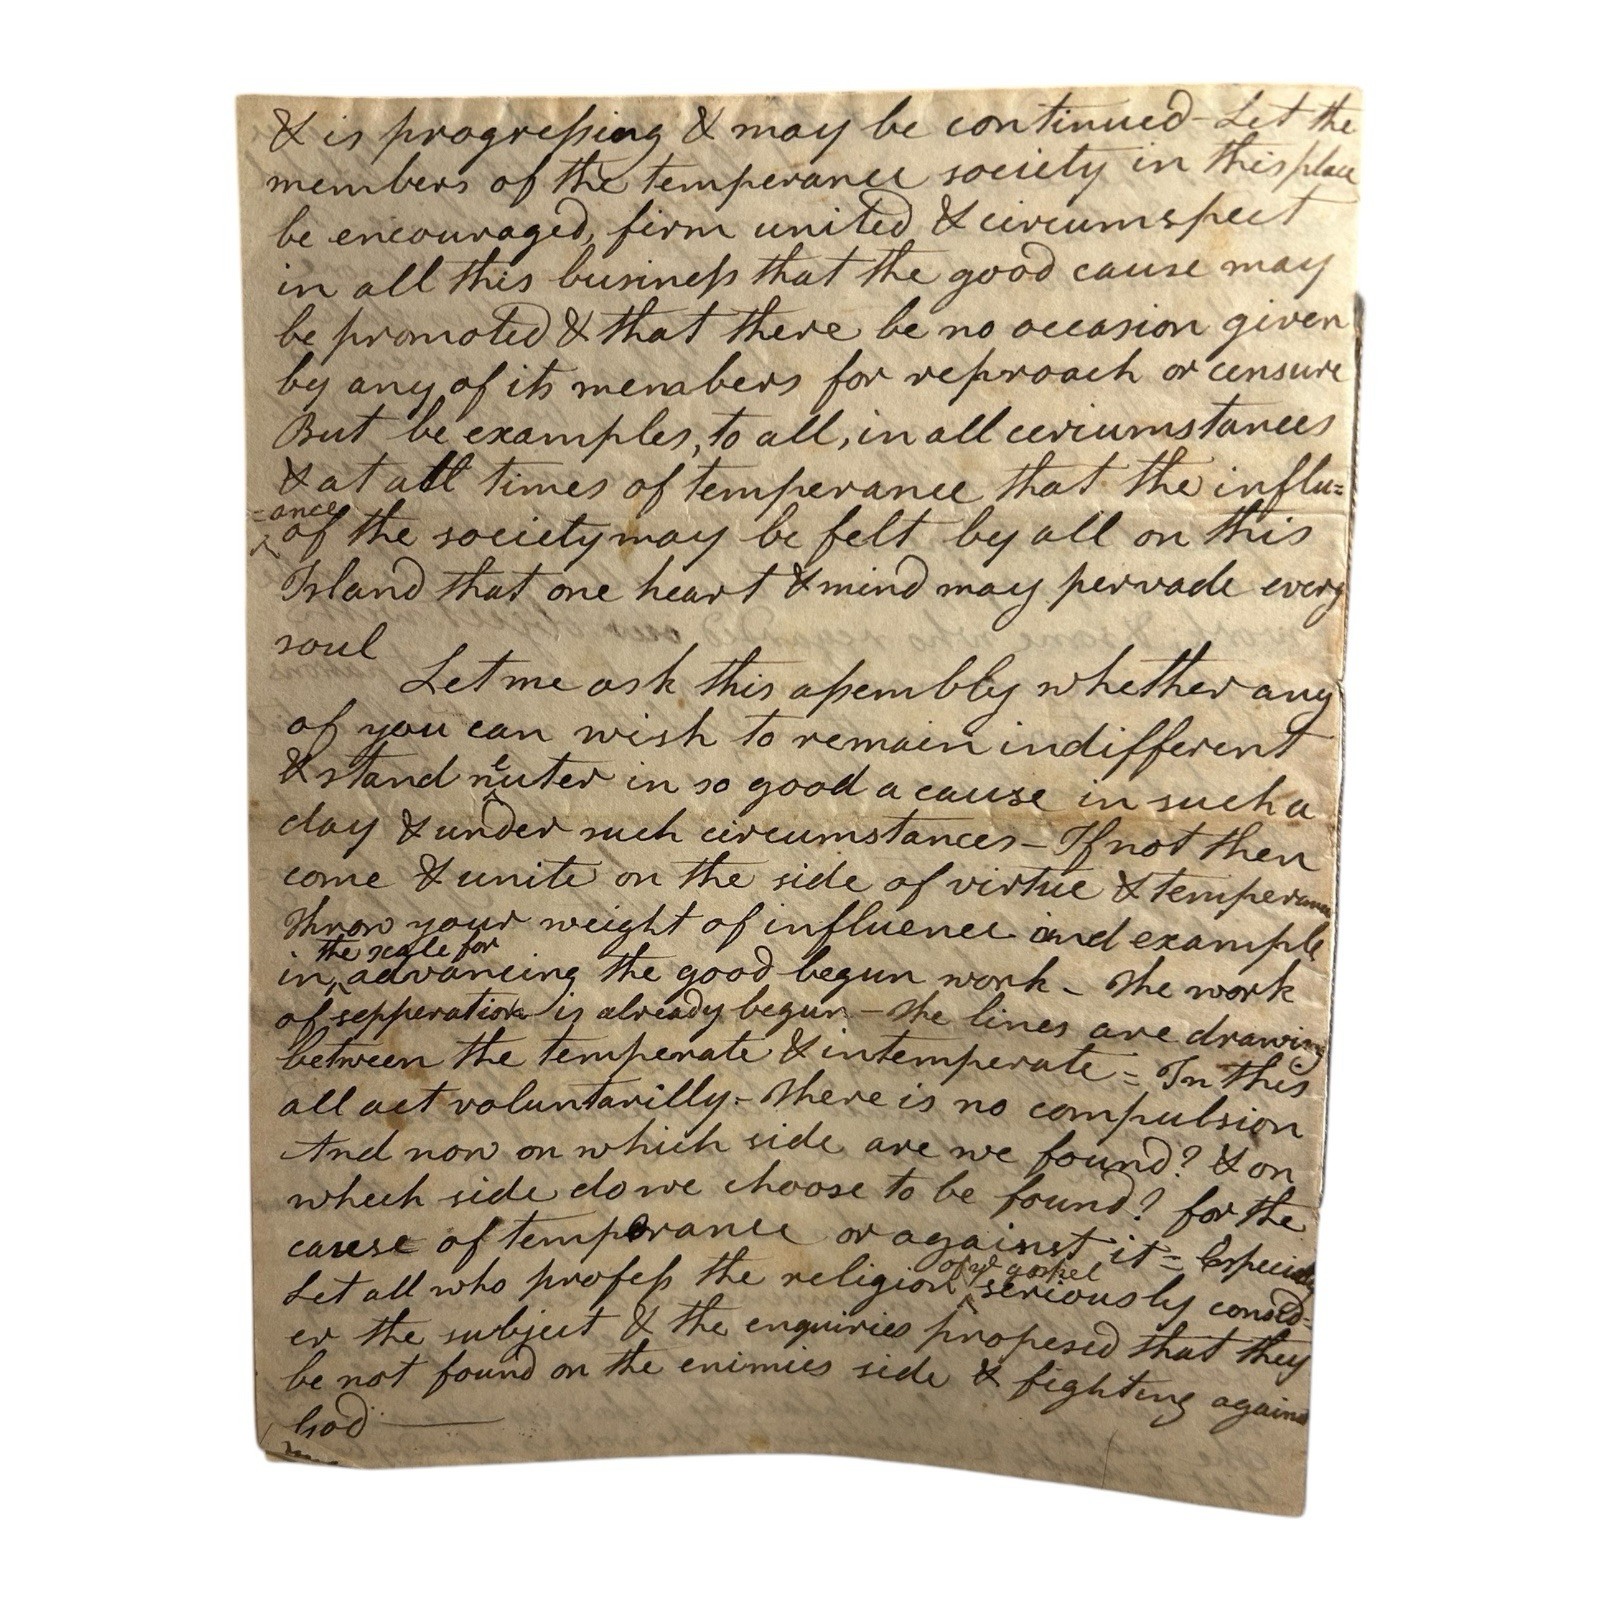 & is progressing & may be continued - Let the
members of the temperance society in this place
be encouraged, firm united & circumspect
in all this business that the good cause may
be promoted & that there be no occasion given
by any of its members for reproach or censure
But be examples, to all, in all cericumstances
& at all times of temperance that the influ=
=ance
of the society may be felt by all on this
Island that one heart & mind may pervade every
soul
Let me ask this assembly whether any
of you can wish to remain indifferent
& stand neuter in so good a cause in such a
day & under such circumstances - If not then
come & unite on the side of virtue & temperance
Throw your weight of influence and example
in the scale for advancing the good begun work - The work
of sepperation is already begun - The lines are drawing
between the temperate & intemperate = In this
all act voluntarilly - There is no compulsion
And now on which side are we found? & on
which side do we choose to be found? for the
cause of temperance or against it = Especially
Let all who profess the religion of ye gospel seriously consid=
er the subject & the enquiries propesed that they
be not found on the enimies side & fighting against
God